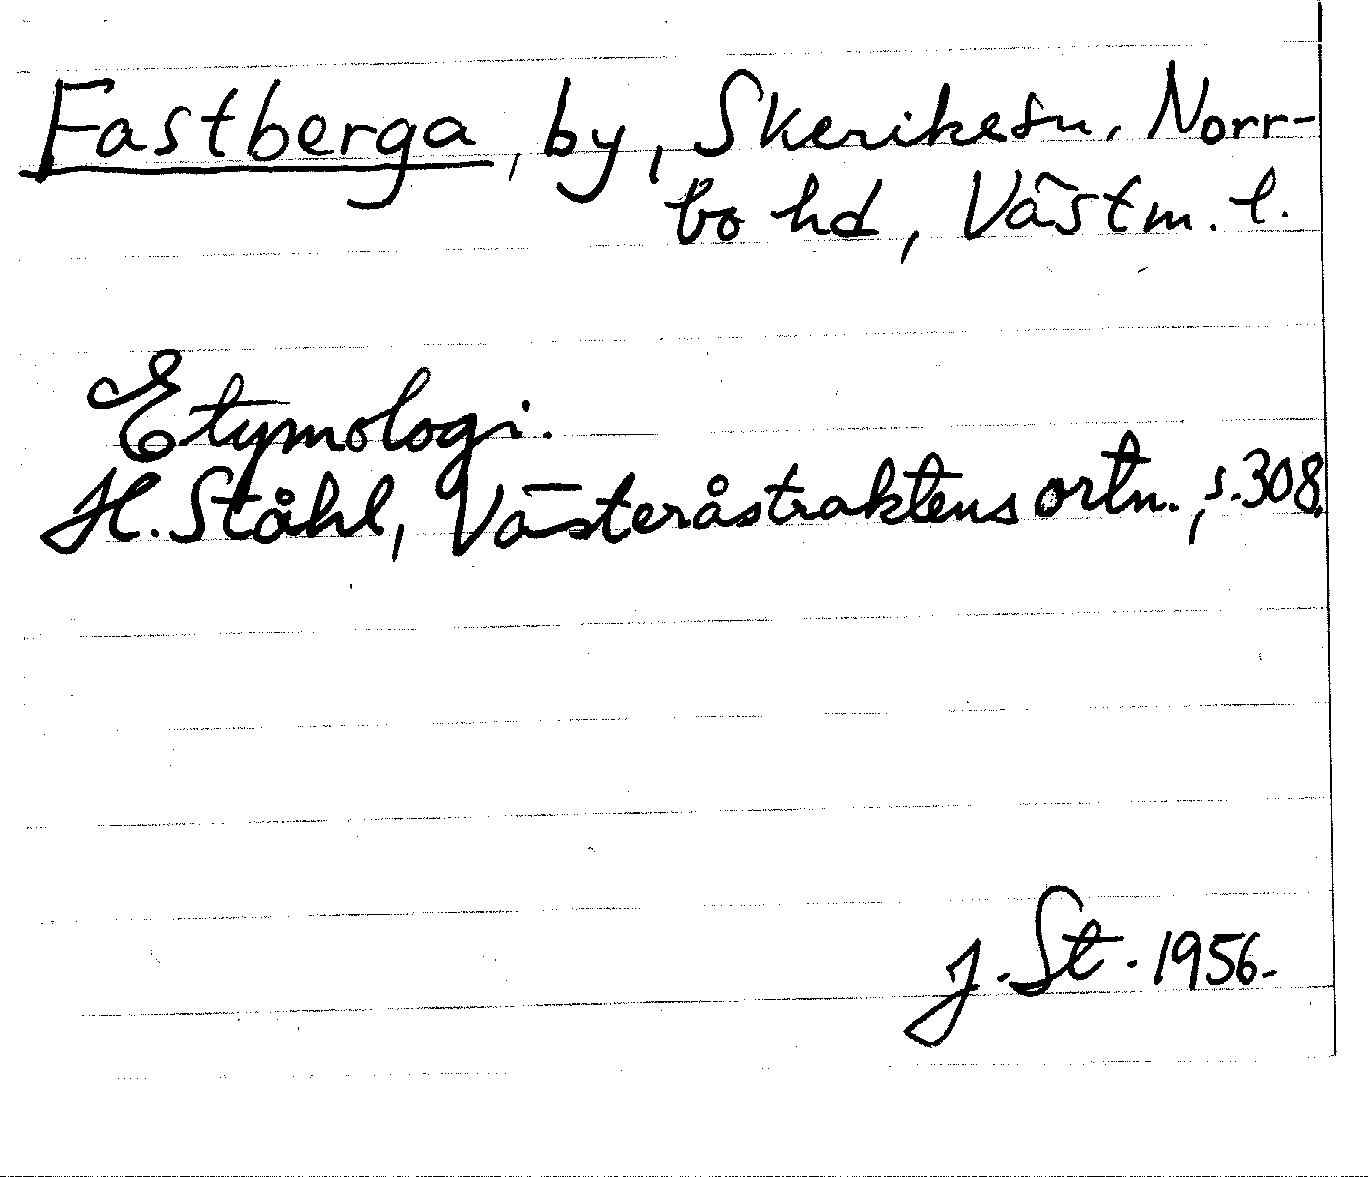 Fastberga, by, Skerike sn, Norr-
bo hd, Västm. l.
Etymologi.
H. Ståhl, Västeråstraktens ortn., s. 308.
J. St. 1956.